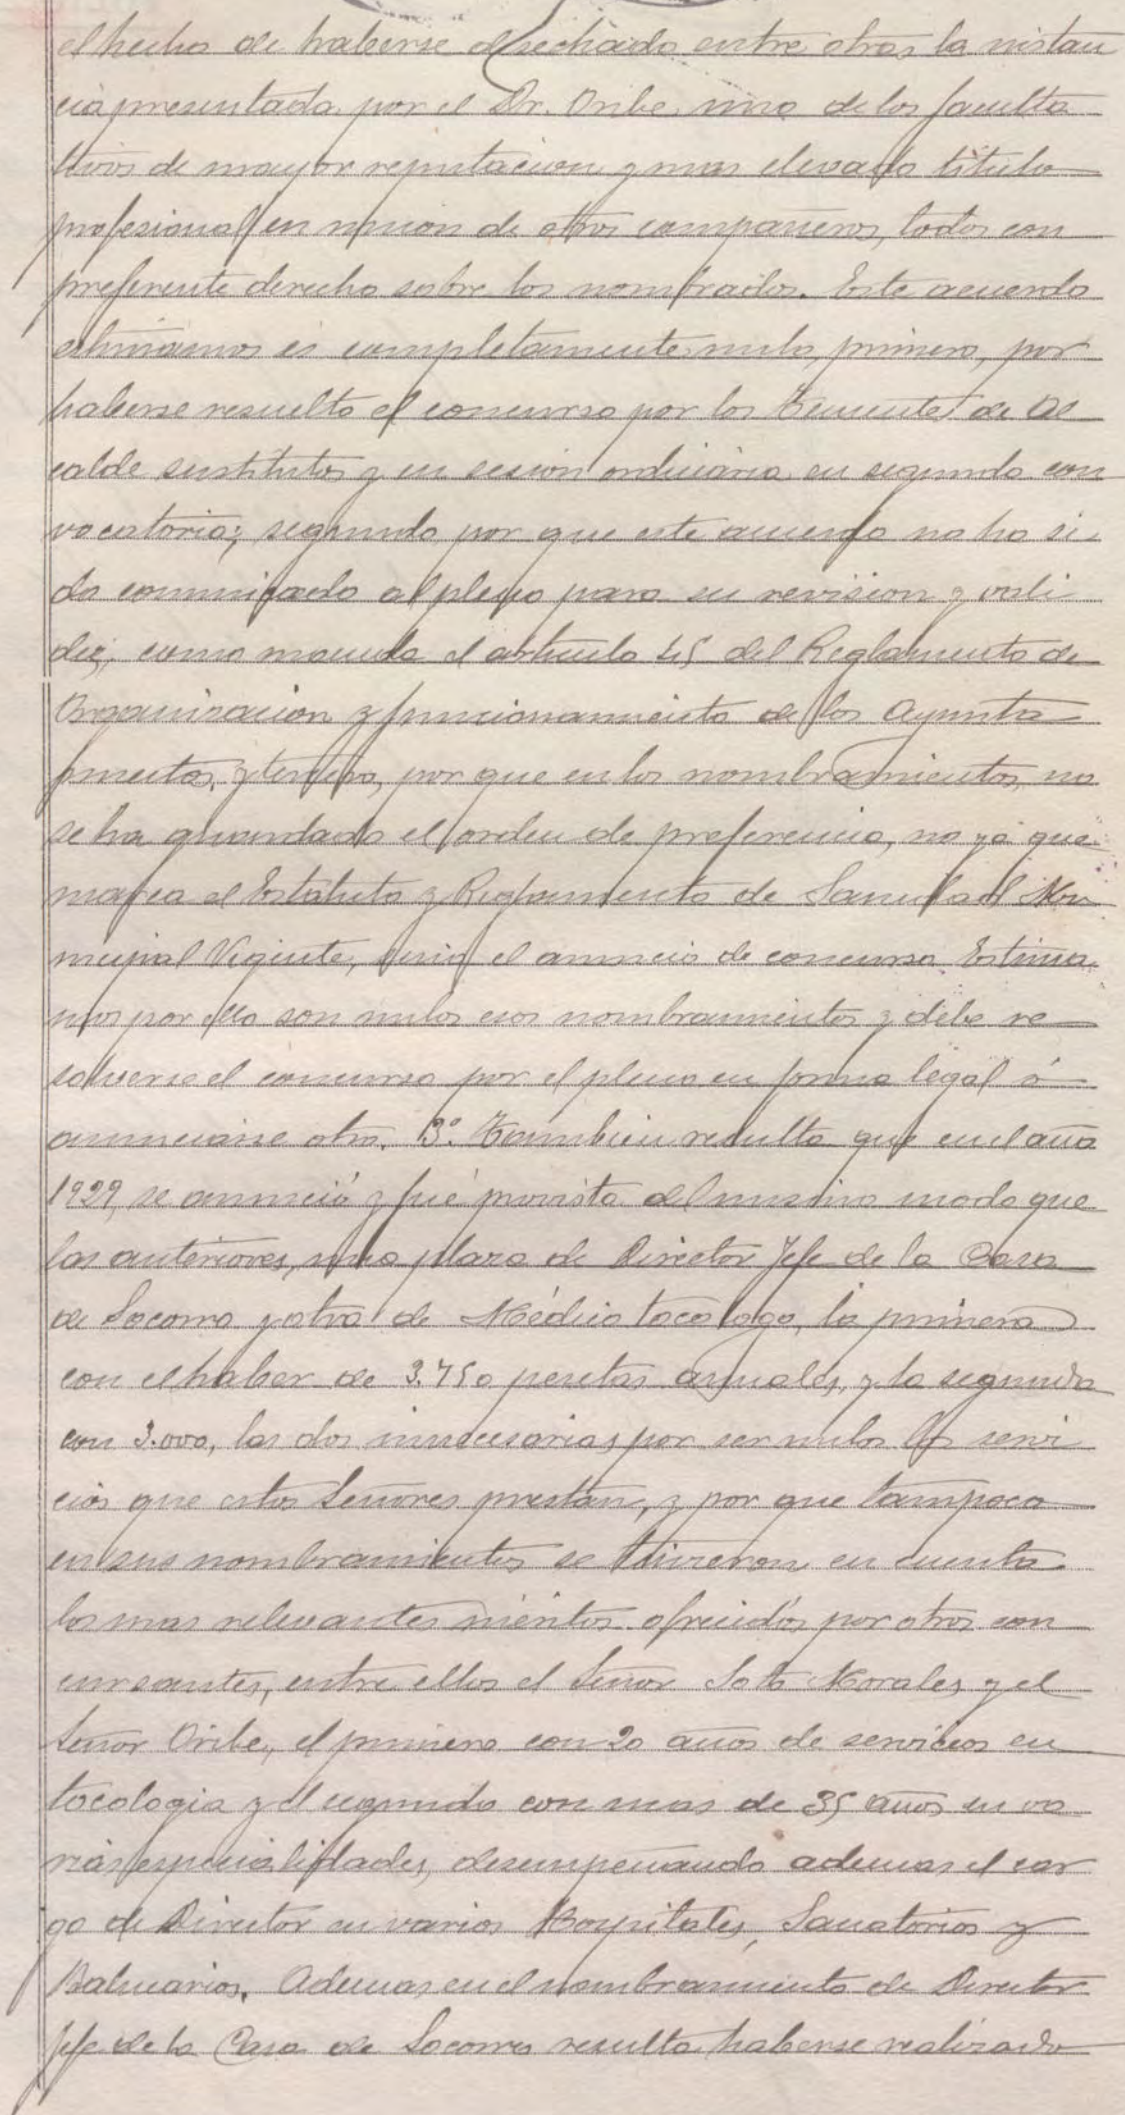 el hecho de haberse desechado entre otras la instan
cia presentada por el Dr. Oribe, uno de los faculta
tivos de mayor reputacion y mas elevado titulo
profesional en union de otros compañeros, todos con
preferente derecho sobre los nombrados. Este acuerdo
estimamos es completamente nulo, primero, por
haberse resuelto el concurso por los Tenientes de Al
calde sustitutos y en sesion ordinaria en segunda con
vocatoria; segundo por que este acuerdo no ha si-
do comunicado al pleno para su revision y vali
dez, como manda el articulo 45 del Reglamento de
Organizacion y funcionamiento de los Ayunta
mientos, y tercero, por que en los nombramientos, no
se ha guardado el orden de preferencia, no ya que
marca el Estatuto y Reglamento de Sanidad Mu
nicipal Vigente, sino el anuncio de concurso. Estima
mos por ello son nulos esos nombramientos y debe re
solverse el concurso por el pleno en forma legal ó
anunciarse otro. 3º Tambien resulta que en el año
1929, se anunció y fué provista del mismo modo que
las anteriores, una plaza de Director Jefe de la Casa
de Socorro y otra de Médico tocologo, la primera
con el haber de 3.750 pesetas anuales, y la segunda
con 3.000, las dos innecesarias, por ser nulos los servi
cios que estos Señores prestan, y por que tampoco
en sus nombramientos se tuvieron en cuenta
los mas relevantes méritos ofrecidos por otros con
cursantes, entre ellos el Señor Soto Morales, y el
Señor Oribe, el primero con 20 años de servicios en
tocologia y el segundo con mas de 35 años en va
rias especialidades, desempeñando ademas el car
go de Director en varios Hospitales, Sanatorios y
Balnearios. Ademas en el nombramiento de Director
Jefe de la Casa de Socorro resulta haberse realizado